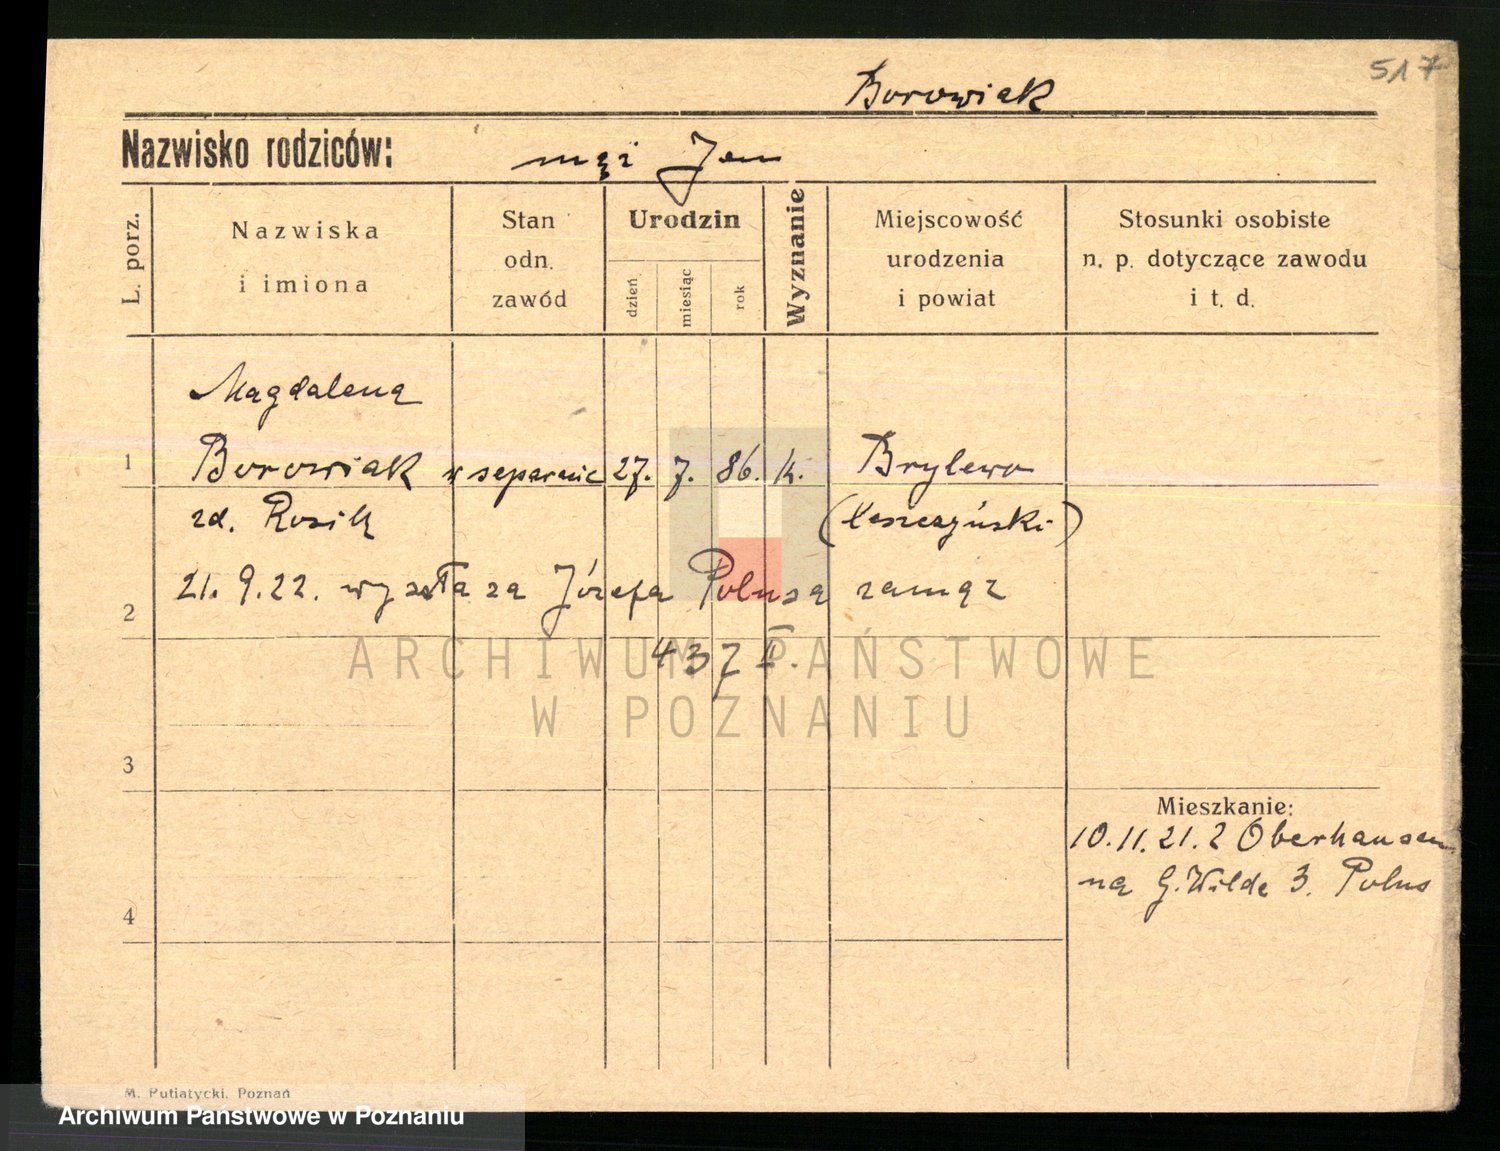 517
Borowiak
Nazwisko rodziców: mąż Jan
L. porz.
Nazwiska
i imiona
Stan
odn.
zawód
Urodzin
dzień
miesiąc
rok
Wyznanie
Miejscowość
urodzenia
i powiat
Stosunki osobiste
n. p. dotyczące zawodu
i t. d.
Magdalena
1 Borowiak w separacie 27. 7. 86. k. Brylewo
zd. Rosik (Leszczyński)
21. 9. 22. wyszła za Józefa Polusa zamąż
2
437 II.
3
Mieszkanie:
10. 11. 21. z Oberhausen
na G. Wilde 3. Polus
4
ARCHIWUM PAŃSTWOWE
W POZNANIU
M. Putiatycki, Poznań
Archiwum Państwowe w Poznaniu